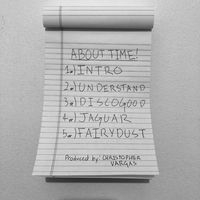 ABOUT TIME!
1.) INTRO
2.) UNDERSTAND
3.) DISCOGOOD
4.) JAGUAR
5.) FAIRYDUST
Produced by: CHRISTOPHER
VARGAS